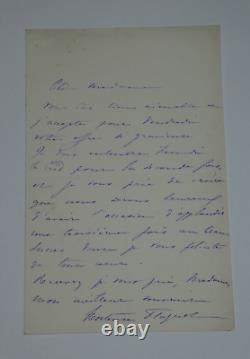 Chère Madame
Vous êtes bien aimable et
j'accepte pour Vendredi
votre offre si gracieuse
Je vous
le pour la seconde fois,
et je vous prie de croire
que nous serons heureux
d'avoir l'occasion d'applaudir
une troisième fois un beau
succès dont je vous félicite
de tout cœur.
Recevez je vous prie, Madame,
mon meilleur souvenir